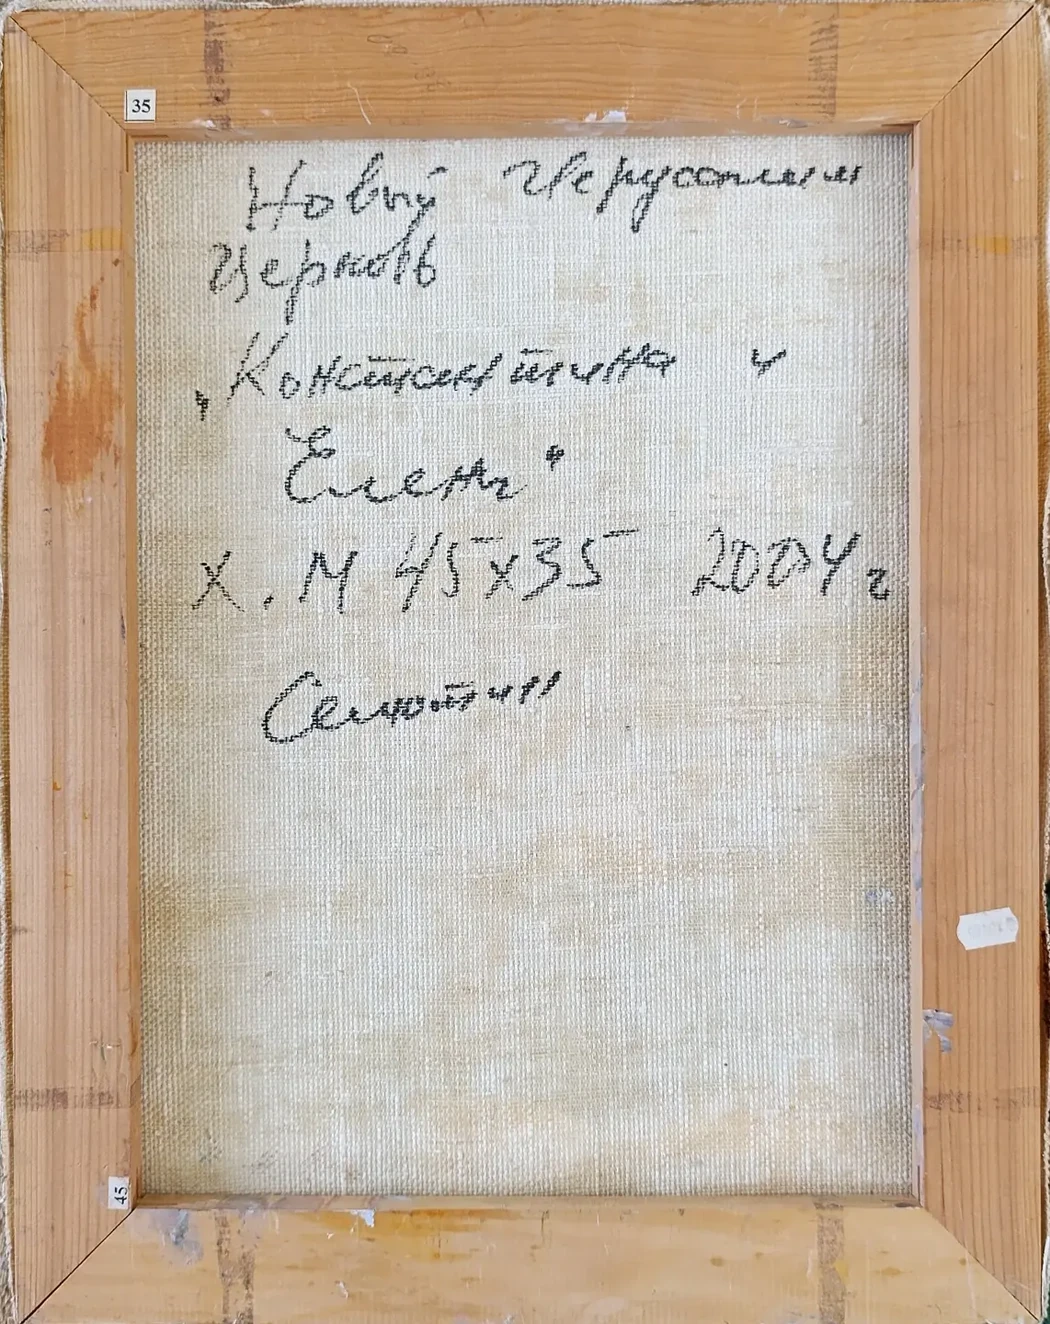 35
Новый Иерусалим
Церковь
„Константина и
Елены"
х.м 45х35 2004г
Семютин
45